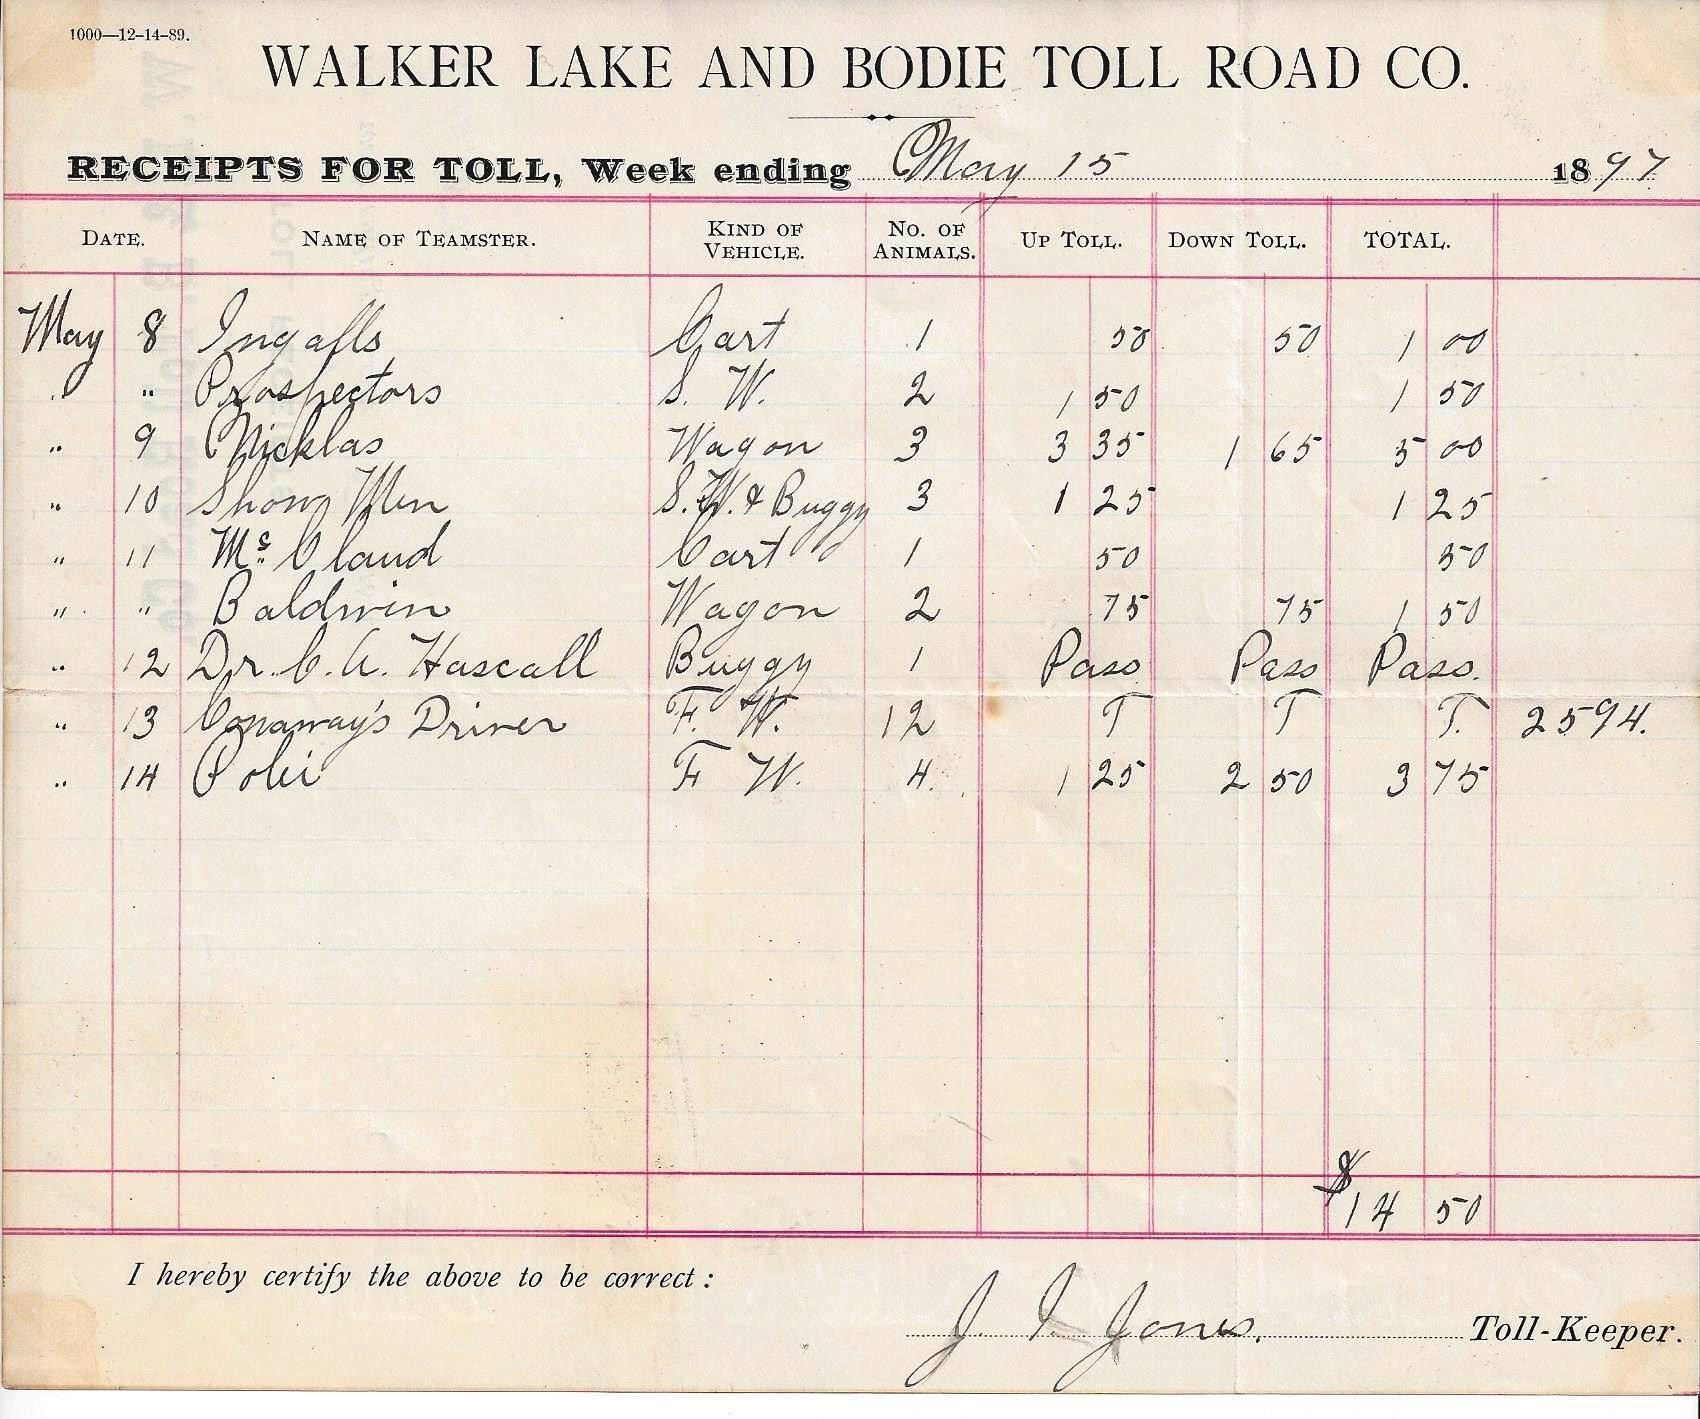 1000—12-14-89.
WALKER LAKE AND BODIE TOLL ROAD CO.
RECEIPTS FOR TOLL, Week ending May 15 1897
DATE. NAME OF TEAMSTER. KIND OF VEHICLE. NO. OF ANIMALS. UP TOLL. DOWN TOLL. TOTAL.
May 8 Ingalls Cart 1 50 50 1 00
" " Prospectors S. W. 2 1 50 1 50
" 9 Nicklas Wagon 3 3 35 1 65 5 00
" 10 Show Men S. W. & Buggy 3 1 25 1 25
" 11 Mc. Cloud Cart 1 50 50
" " Baldwin Wagon 2 75 75 1 50
" 12 Dr. C. A. Hascall Buggy 1 Pass Pass Pass.
" 13 Conaway's Driver F. W. 12 T T T. 2594.
" 14 F W. 4. 1 25 2 50 3 75
$14 50
I hereby certify the above to be correct:
J. I. Jones. Toll-Keeper.